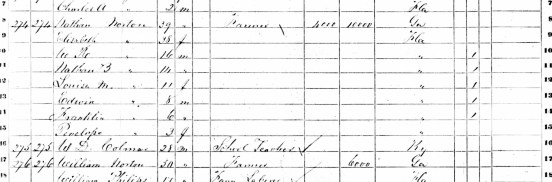 7 Charles A " 2 m Fla 7
8 274 274 Nathan Norton 39 " Farmer 4000 10000 Ga 8
9 Elizabeth " 38 f Fla 9
10 " 16 m " 1 10
11 Nathan B " 14 " " 1 11
12 Louisa M. " 11 f " 1 12
13 Edwin " 8 m " 1 13
14 Franklin " 6 " " 1 14
15 Penelope " 3 f " 15
16 275 275 W D. Colman 28 m School Teacher Ky 16
17 276 276 William Norton 50 " Farmer 6000 Ga 17
18 William Farm Laborer Fla 18